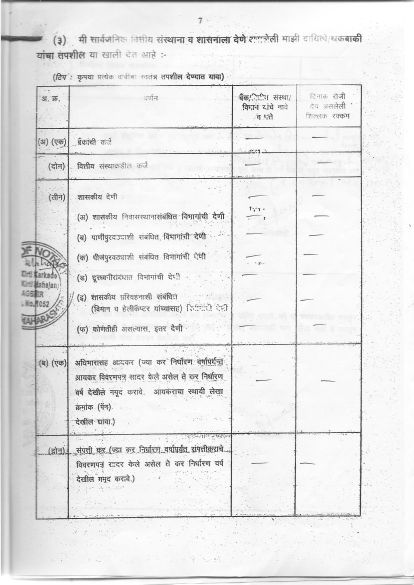 7
(३) मी सार्वजनिक वित्तीय संस्थाना व शासनाला देणे असलेली माझी दायित्वे/थकबाकी
यांचा तपशील या खाली देत आहे :-
(टिप : कृपया प्रत्येक बाबीचा स्वतंत्र तपशील देण्यात यावा)
अ. क्र. वर्णन बँक/वित्तिय संस्था/ दिनांक रोजी
विभाग यांचे नावे देय असलेली
व पत्ते शिल्लक रक्कम
(अ) (एक) बँकांची कर्जे
(दोन) वित्तीय संस्थाकडील कर्जे
(तीन) शासकीय देणी
(अ) शासकीय निवासस्थानासंबंधित विभागांची देणी
(ब) पाणीपुरवठ्याशी संबंधित विभागांची देणी
(क) वीजपुरवठ्याशी संबंधित विभागांची देणी
(ड) दूरध्वनीसंबंधात विभागांची देणी
(इ) शासकीय परिवहनाशी संबंधित
(विमान व हेलीकॉप्टर यांच्यासह) विभागांची देणी
(फ) कोणतीही असल्यास, इतर देणी
(ब) (एक) अधिभारासह आयकर (ज्या कर निर्धारण वर्षापर्यन्त
आयकर विवरणपत्र सादर केले असेल ते कर निर्धारण
वर्ष देखील नमूद करावे. आयकराचा स्थायी लेखा
क्रमांक (पॅन).
देखील द्यावा.)
(दोन) संपत्ती कर (ज्या कर निर्धारण वर्षापर्यंत संपत्तीकराचे
विवरणपत्र सादर केले असेल ते कर निर्धारण वर्ष
देखील नमूद करावे.)